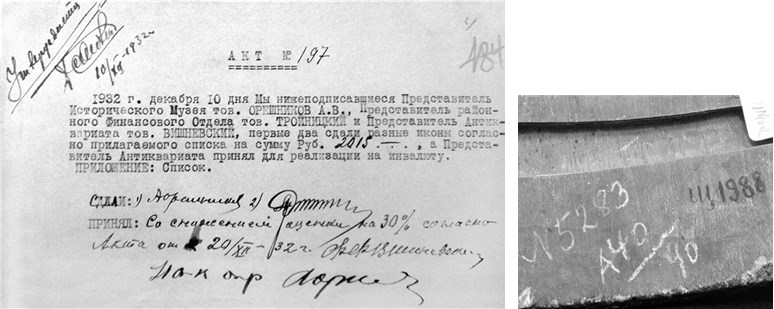 Утверждаю
10/XII-1932г.
484
АКТ № 197
1932 г. декабря 10 дня Мы нижеподписавшиеся Представитель
Исторического Музея тов. ОРЕШНИКОВ А.В., Представитель район-
ного Финансового Отдела тов. ТРОЙНИЦКИЙ и Представитель Антик-
вариата тов. ВИШНЕВСКИЙ, первые два сдали разные иконы соглас-
но прилагаемого списка на сумму Руб. 2015 —.—, а Предста-
витель Антиквариата принял для реализации на инвалюту.
ПРИЛОЖЕНИЕ: Список.
СДАЛИ: 1) АОрешников 2)
ПРИНЯЛ: Со снижением оценки на 30% согласно
Акта от 20/XII-32г.
N5293
A40/90
Щ1988